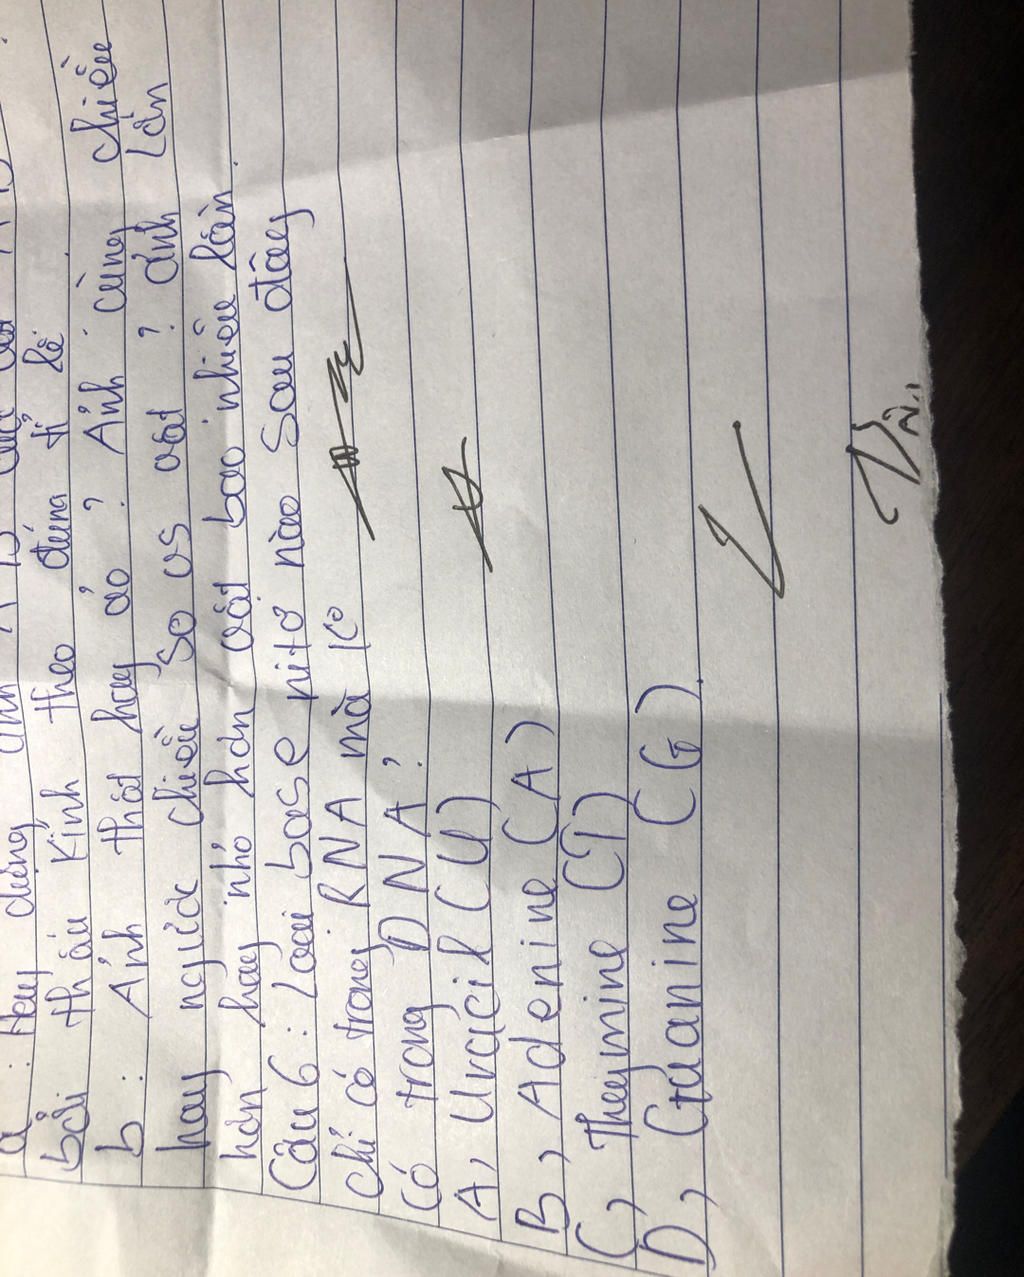 a: Hãy dựng ảnh A'B' của vật AB
bởi thấu kính theo đúng tỉ lệ
b: Ảnh thật hay ảo? Ảnh cùng chiều
hay ngược chiều so vs vật? ảnh lớn
hơn hay nhỏ hơn vật bao nhiêu lần
Câu 6: Loại base nitơ nào sau đây
chỉ có trong RNA mà ko
có trong DNA?
A, Uracil (U)
B, Adenine (A)
C, Theymine (T)
D, Guanine (G)